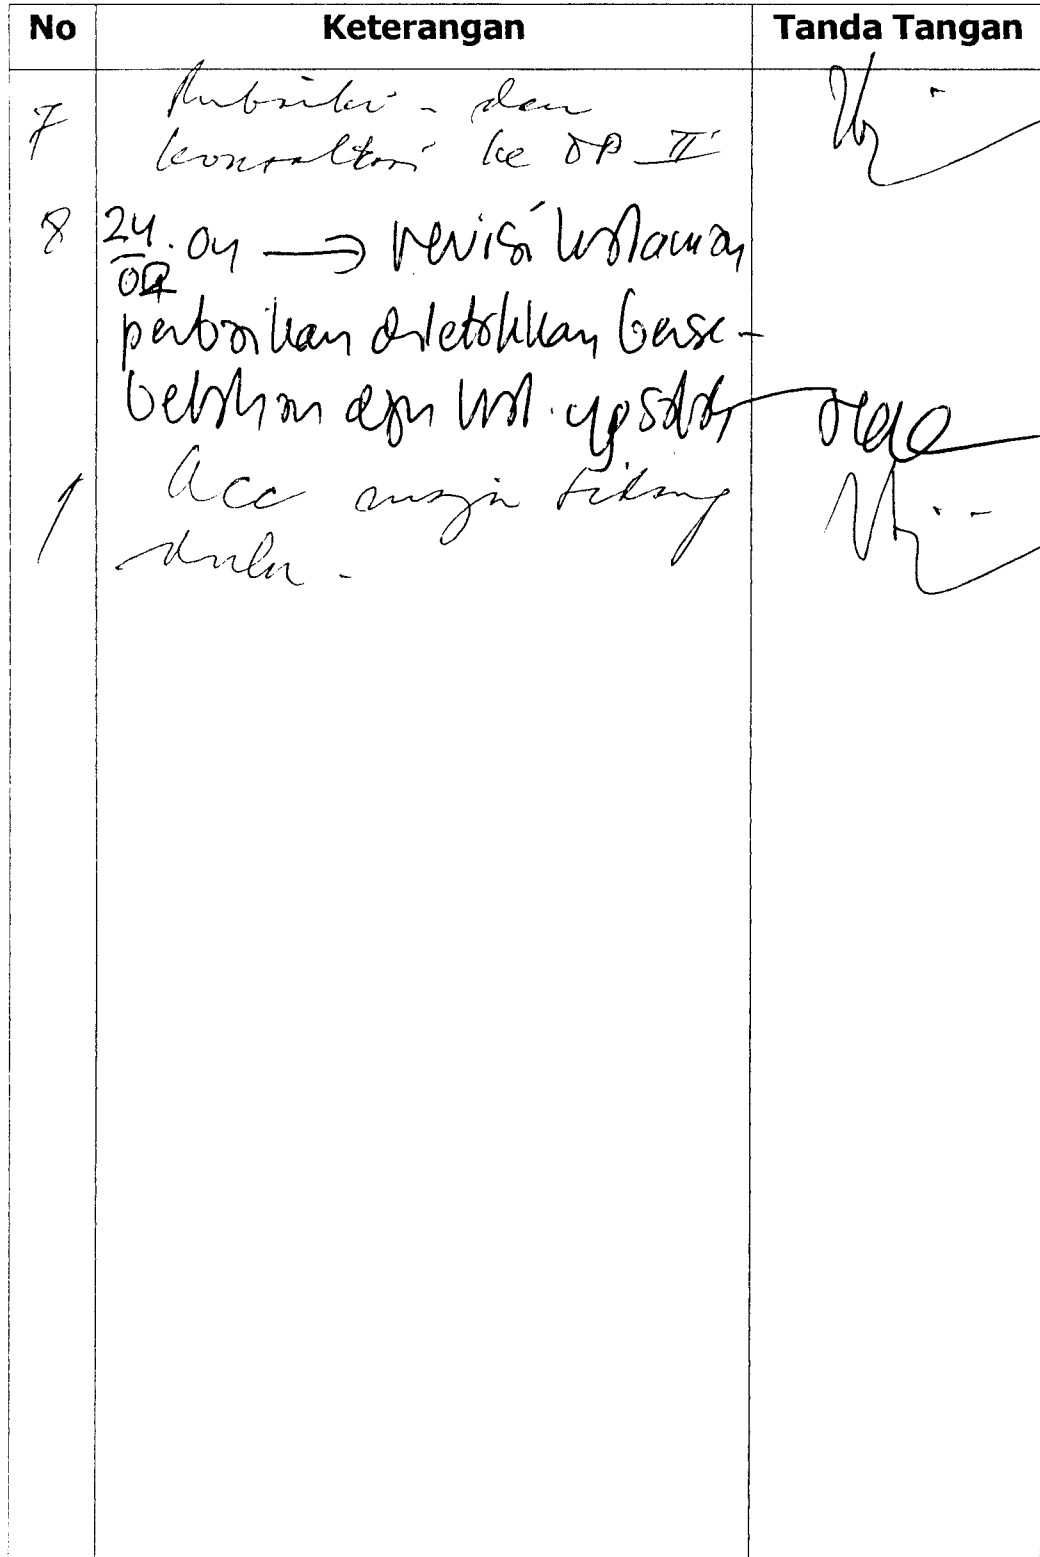 No Keterangan Tanda Tangan
7 dan
konsultasi ke DP II
8 24 . 04 → revisi halaman
perbaikan diletakkan berse-
belahan dgn hal. yg salah
acc maju sidang
dulu -